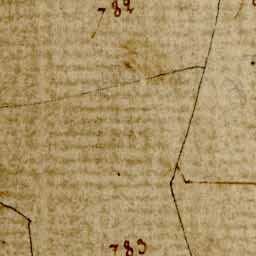 782
783